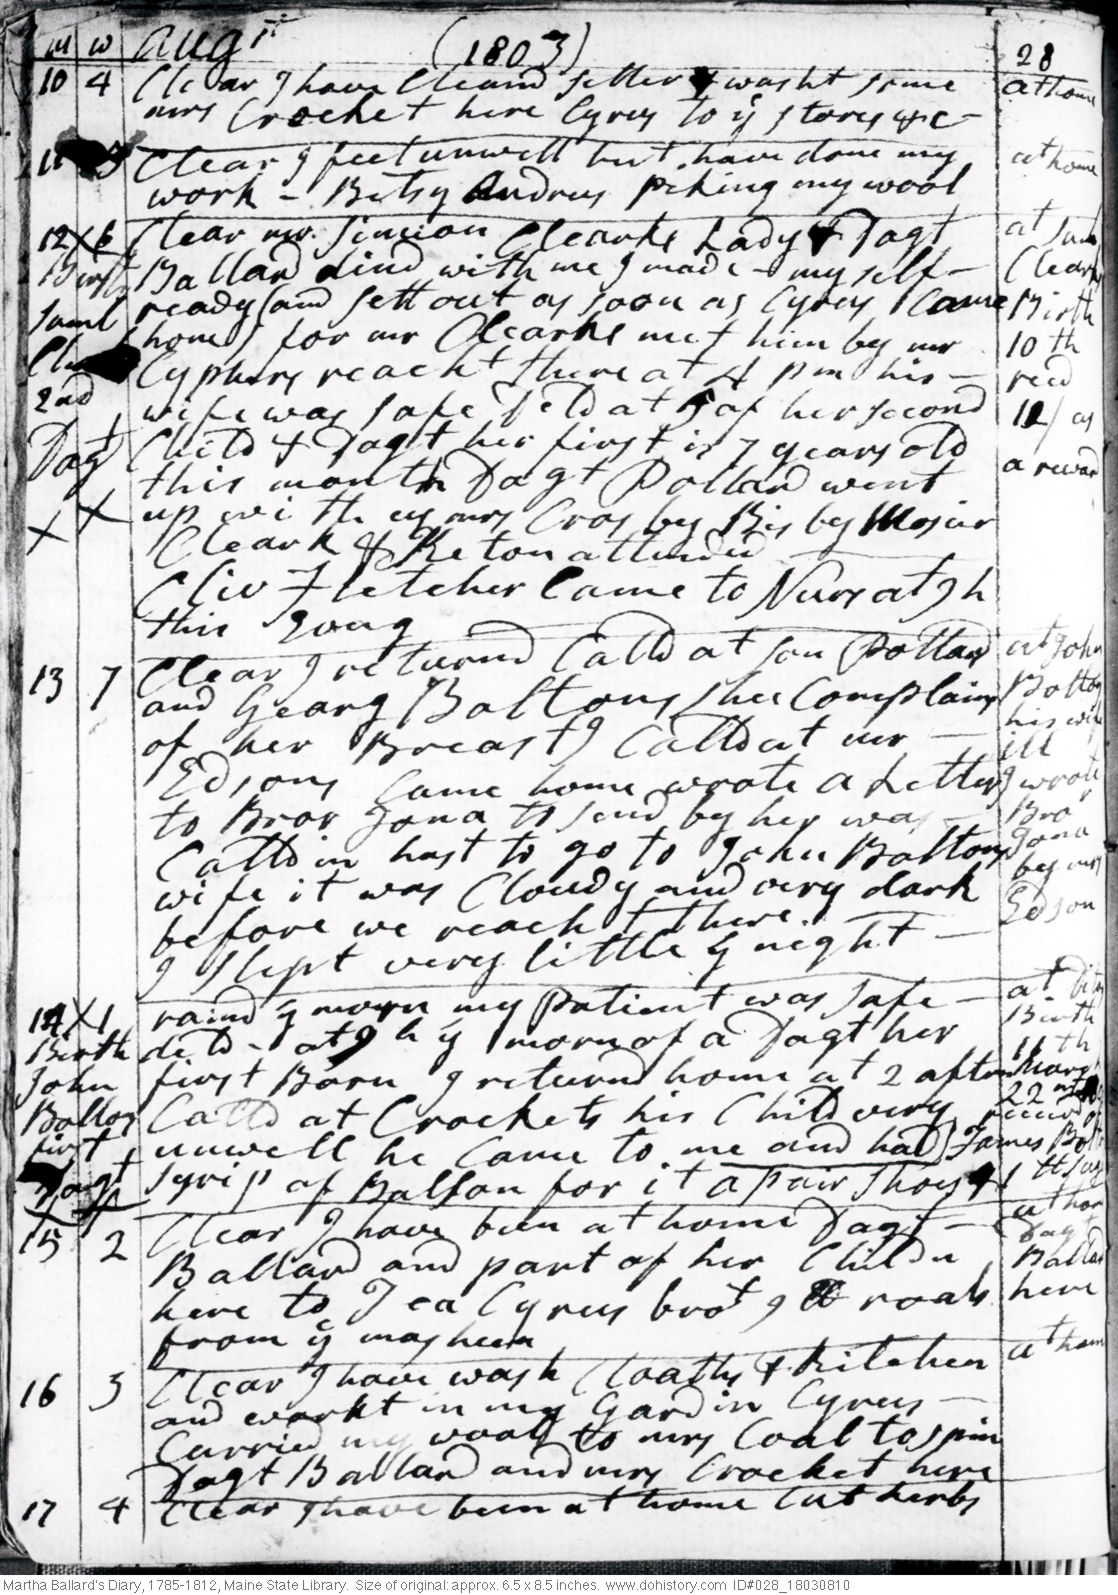 m w Augst (1803) 28
10 4 Clear I have Cleand seller & washt some at home
mrs Crocket here Cyrus to ye stores &c
11 5 Clear I feel unwell but have done my at home
work - Betsy Andrus piking my wool
12 X 6 Clear mr. Simeon Clearks Lady & Dagt at Saml
Birth Ballard dind with me I made my self Clearks
Saml ready (and sett out as soon as Cyrus Came Birth
home) for mr Clearks met him by mr 10 th
Cyphers reacht there at 4 pm his recd
2nd wife was safe deld at 5 of her second 12/ as
Dagt Child & Dagt her first is 7 years old a reward
this month Dagt Pollard went
X X up with us mrs Cros by Bis by Major
Cleark & Keton attended
Cliv Fletcher Came to Nurs at 9 h
this Evng
13 7 Clear I returnd Calld at son Pollard at John
and Georg Boltons (shee Complains Boltons
of her Breast) Calld at mr his wife
ill
Edsons Came home wrote a Letter I wrote
to Bror Jona to send by her was Bror
Calld in hast to go to John Boltons Jona
wife it was Cloudy and very dark by mrs
before we reacht there. Edson
I slept very little ye night
14 X 1 raind ye morn my patient was safe at Ditto
Birth
Birth deld - at 9 h ye morn of a Dagt her 11 th
John first Born I returnd home at 2 aftern
Bolton Calld at Crockets his Child very
first unwell he Came to me and had James Bolt
Dagt syrip of Balsom for it a pair Shoes &
15 2 Clear I have been at home Dagt at home
Dagt
Ballard and part of her Childn Ballard
here to Tea Cyrus brot 9 lb roals here
from ye masheen
16 3 Clear I have wash Cloaths & Kitchen at home
and workt in my Gardin Cyrus
Carried my wool to mrs Coal to spin
Dagt Ballard and mrs Crocket here
17 4 Clear I have been at home Cut herbs
Martha Ballard's Diary, 1785-1812, Maine State Library. Size of original: approx. 6.5 x 8.5 inches. www.dohistory.com ID#028_18030810